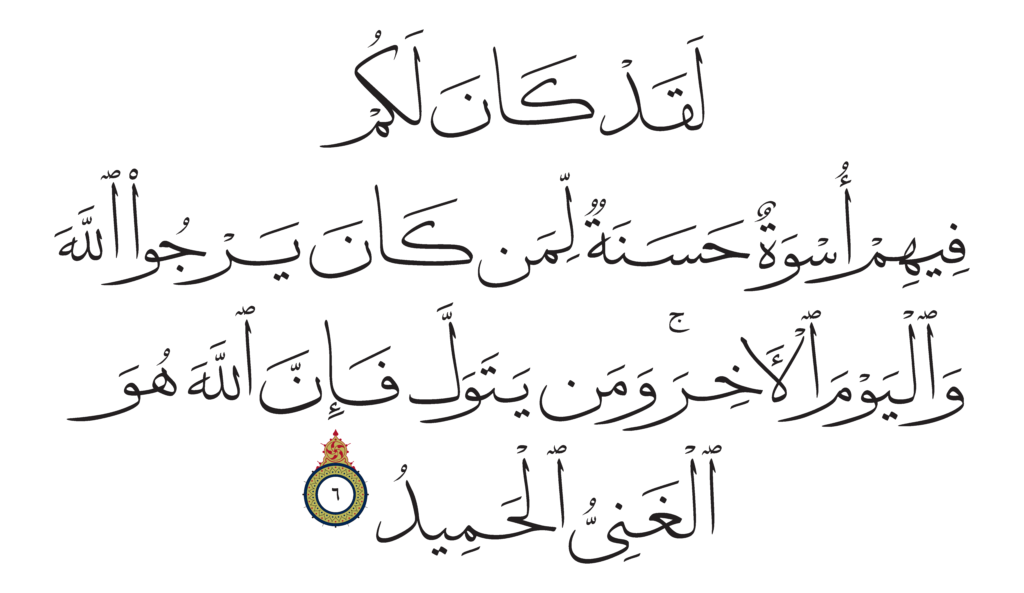 لَقَدْ كَانَ لَكُمْ
فِيهِمْ أُسْوَةٌ حَسَنَةٌ لِّمَن كَانَ يَرْجُوا۟ ٱللَّهَ
وَٱلْيَوْمَ ٱلْأَخِرَ ۚ وَمَن يَتَوَلَّ فَإِنَّ ٱللَّهَ هُوَ
ٱلْغَنِىُّ ٱلْحَمِيدُ ٦